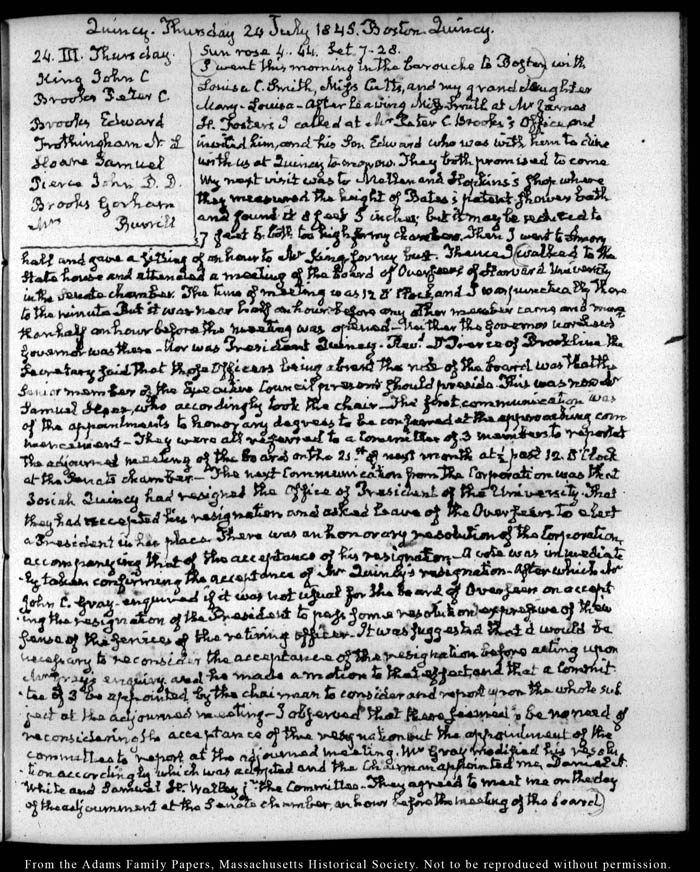 Quincy. Thursday 24 July 1845. Boston. Quincy.
24. III. Thursday.
King John C
Brooks Peter C
Brooks Edward
Frothingham N. L
Hoare Samuel
Pierce John D. D.
Brooks Gorham
Mrs Burrill
Sun rose 4..44. Set 7-28.
I went this morning in the barouche to Boston with
Louisa C. Smith, Miss Cutts, and my grand daughter
Mary-Louisa- After leaving Miss Smith at Mr James
H. Fosters, I called at Mr Peter C. Brooks's Office, and
invited him, and his Son Edward who was with him to dine
with us at Quincy to-morrow. They both promised to come
My next visit was to and Hopkins's shop where
they measured the height of Bates's patent shower bath
and found it 8 feet 5 inches; but it may be reduced to
7 feet 5. both too high for my chamber. Then I went to Amory
hall and gave a sitting of an hour to Mr King for my bust. Thence I walked to the
State house and attended a meeting of the board of Overseers of Harvard University
in the Senate chamber. The time of meeting was 12 O'Clock, and I was punctually there
to the minute But it was near half an hour before any other member came and more
than half an hour before the meeting was opened- Neither the Governor nor Lieut
Governor was there- Nor was President Quincy- Revd Dr Pierce of Brookline the
Secretary said that those Officers being absent the rule of the board was that the
Senior member of the Executive Council present should preside. This was now Mr
Samuel who accordingly took the chair- The first communication was
of the appointments to honorary degrees to be conferred at the approaching com
mencement- They were all referred to a Committee of 3 members to report at
the adjourned meeting of the board on the 21st of next month at ½ past 12. O'Clock
at the Senate chamber.- The next Communication from the Corporation was that
Josiah Quincy had resigned the Office of President of the University- That
they had accepted his resignation and asked leave of the Overseers to elect
a President in his place. There was an honorary resolution of the Corporation
accompanying that of the acceptance of his resignation- A vote was immediate
ly taken confirming the acceptance of Mr Quincy's resignation- After which Mr
John C. Gray- enquired if it was not usual for the board of Overseers on accept
ing the resignation of the President to pass some resolution expressive of their
sense of the services of the retiring officer. It was suggested that it would be
necessary to reconsider the acceptance of the resignation before acting upon
Mr Gray's enquiry and he made a motion to that effect, and that a Commit
tee of 3 be appointed by the chairman to consider and report upon the whole sub
ject at the adjourned meeting- I observed that there seemed to be no need of
reconsidering the acceptance of the resignation but the appointment of the
committee to report at the adjourned meeting. Mr Gray modified his resolu
tion accordingly which was adopted and the Chairman appointed me, Daniel A.
White and Samuel H. Walley jr the Committee- They agreed to meet me on the day
of the adjournment at the Senate chamber, an hour before the meeting of the board
From the Adams Family Papers, Massachusetts Historical Society. Not to be reproduced without permission.